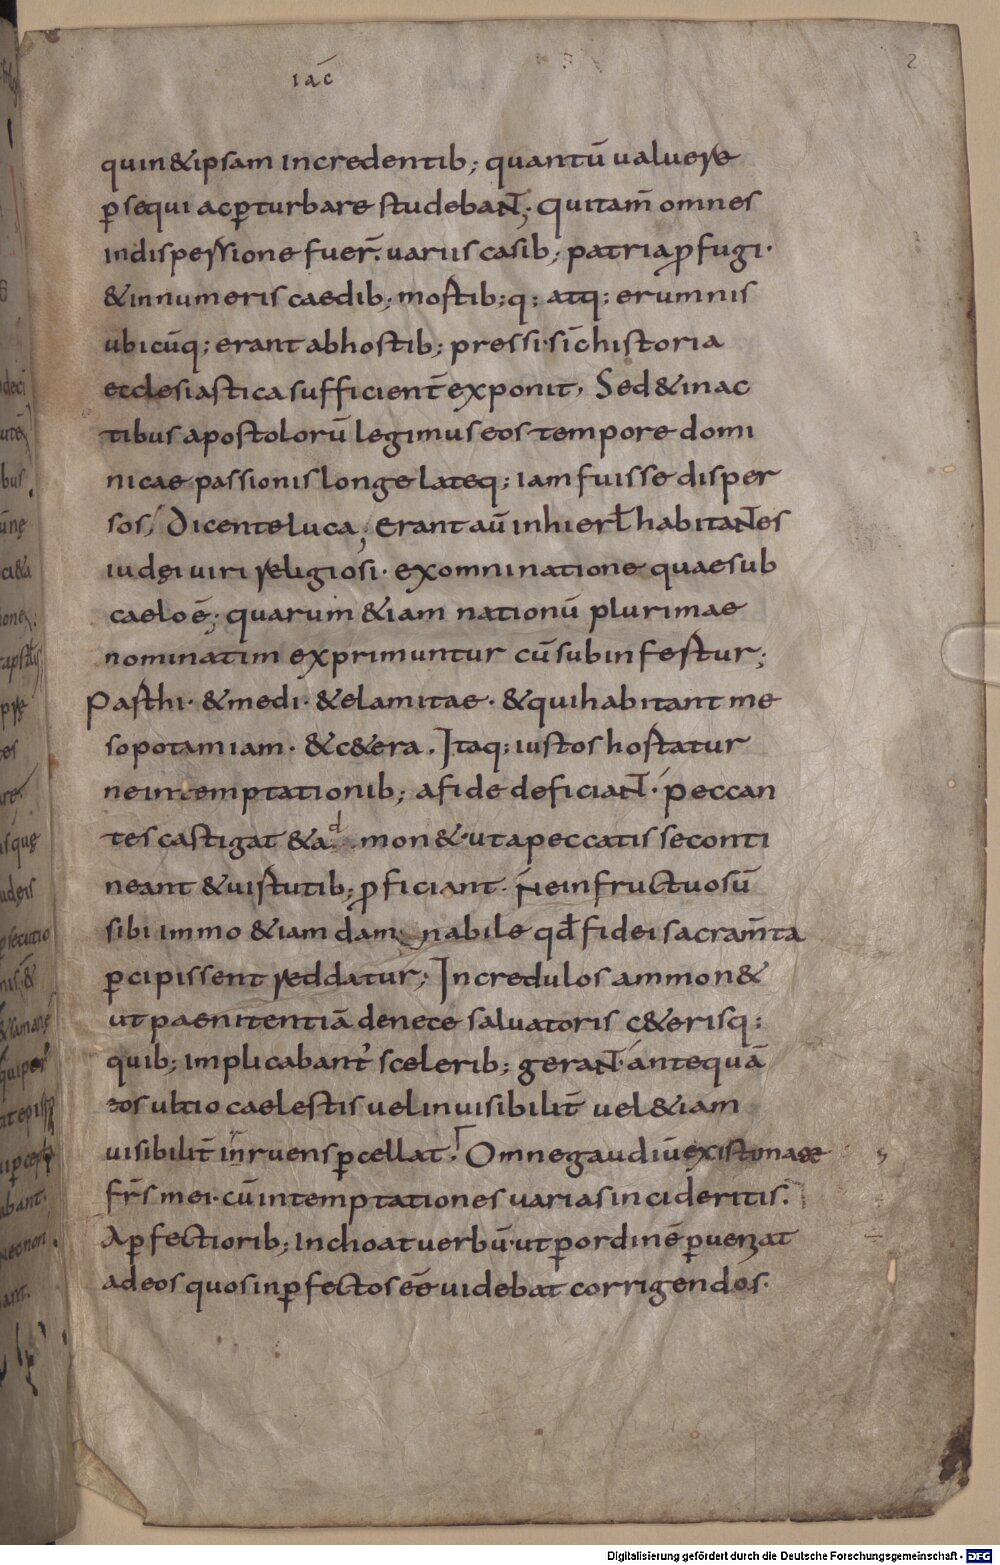 iac̄
2
quin&ipsam incredentib; quantū ualuere
p̱sequi acp̱turbare studebaNT; quitam̄ omnes
indispersione fuer̄. uariis casib; patria ꝓfugi·
&innumeris caedib; mortib;q; atq; erumnis
ubicūq; erant abhostib; pressi· sic̄ historia
ecclesiastica sufficient̄ exponit, Sed&inac
tibus apostolorū legimus eos tempore domi
nicae passionis longe lateq; iam fuisse disper
sos, Dicente luca; Erant aū inhierƚ habitaNTes
iudęi uiri religiosi· exomni natione quae sub
caelo ē; quarum &iam nationū plurimae
nominatim exprimuntur cū subinfertur;
Parthi· &medi· &elamitae· &quihabitant me
sopotamiam· &c&era. Itaq; iustos hortatur
ne intemptationib; afide deficiaNT· peccan
tes castigat &ad mon& utapeccatis seconti
neant &uirtutib; ꝓficiant· Ne infructuosū
sibi immo &iam damnabile qđ fidei sacram̄ta
p̱cipissent reddatur; Incredulos ammon&
ut paenitentiā denece saluatoris c&erisq;
quib; implicabant᷑ scelerib; geraNT· antequā
eos ultio caelestis uel inuisibilit̄ uel &iam
uisibilit̄ inruens p̱cellat. Omne gaudiū existimate
fr̄s mei· cū intemptationes uarias incideritis.
Ap̱fectiorib; inchoat uerbū· ut p̱ordinē p̱ueniat
adeos quos inp̱fectos eē̄ uidebat corrigendos·
Digitalisierung gefördert durch die Deutsche Forschungsgemeinschaft - DFG